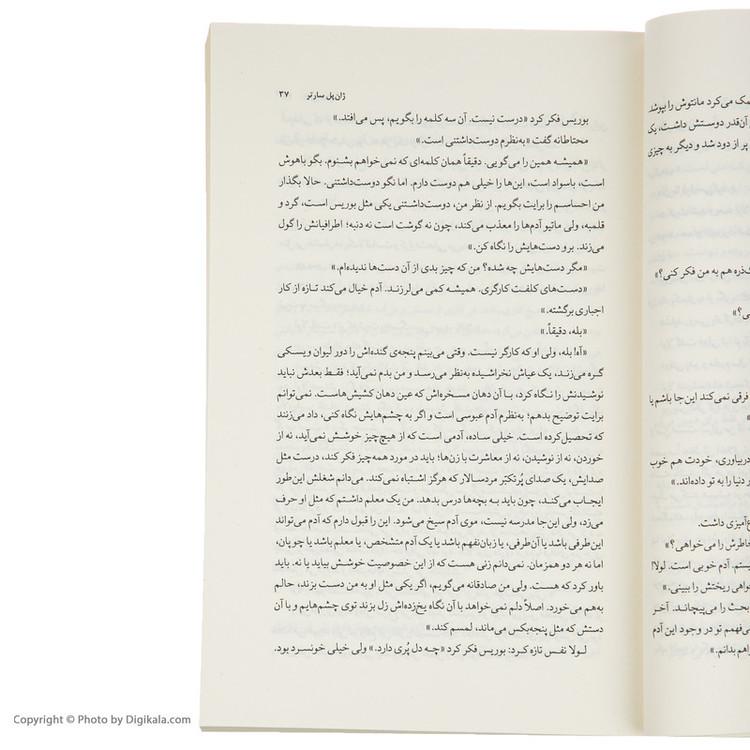 ژان‌پل سارتر ۳۷
بوریس فکر کرد «درست نیست. آن سه کلمه را بگویم، پس می‌افتد.»
محتاطانه گفت «به‌نظرم دوست‌داشتنی است.»
«همیشه همین را می‌گویی. دقیقاً همان کلمه‌ای که نمی‌خواهم بشنوم. بگو باهوش
است، باسواد است، این‌ها را خیلی هم دوست دارم. اما نگو دوست‌داشتنی. حالا بگذار
من احساسم را برایت بگویم. از نظر من، دوست‌داشتنی یکی مثل بوریس است، گرد و
قلمبه، ولی ماتیو آدم‌ها را معذب می‌کند، چون نه گوشت است نه دنبه؛ اطرافیانش را گول
می‌زند. برو دست‌هایش را نگاه کن.»
«مگر دست‌هایش چه شده؟ من که چیز بدی از آن دست‌ها ندیده‌ام.»
«دست‌های کلفت کارگری. همیشه کمی می‌لرزند. آدم خیال می‌کند تازه از کار
اجباری برگشته.»
«بله، دقیقاً.»
«آه! بله، ولی او که کارگر نیست. وقتی می‌بینم پنجه‌ی گنده‌اش را دور لیوان ویسکی
گره می‌زند، یک عیاش نخراشیده به‌نظر می‌رسد و من بدم نمی‌آید؛ فقط بعدش نباید
نوشیدنش را نگاه کرد، با آن دهان مسخره‌اش که عین دهان کشیش‌هاست. نمی‌توانم
برایت توضیح بدهم؛ به‌نظرم آدم عبوسی است و اگر به چشم‌هایش نگاه کنی، داد می‌زنند
که تحصیل‌کرده است. خیلی ساده، آدمی است که از هیچ‌چیز خوشش نمی‌آید، نه از
خوردن، نه از نوشیدن، نه از معاشرت با زن‌ها؛ باید در مورد همه‌چیز فکر کند، درست مثل
صدایش، یک صدای پُرتکبّر مردسالار که هرگز اشتباه نمی‌کند. می‌دانم شغلش این‌طور
ایجاب می‌کند، چون باید به بچه‌ها درس بدهد. من یک معلم داشتم که مثل او حرف
می‌زد، ولی این‌جا مدرسه نیست، موی آدم سیخ می‌شود. این را قبول دارم که آدم می‌تواند
این‌طرفی باشد یا آن‌طرفی، یا زبان‌نفهم باشد یا یک آدم متشخص، یا معلم باشد یا چوپان،
اما نه هر دو همزمان. نمی‌دانم زنی هست که از این خصوصیت خوشش بیاید یا نه. باید
باور کرد که هست. ولی من صادقانه می‌گویم، اگر یکی مثل او به من دست بزند، حالم
به‌هم می‌خورد. اصلاً دلم نمی‌خواهد با آن نگاه یخ‌زده‌اش زل بزند توی چشم‌هایم و با آن
دستش که مثل پنجه‌بکس می‌ماند، لمسم کند.»
لولا نفس تازه کرد: بوریس فکر کرد «چه دل پُری دارد.» ولی خیلی خونسرد بود.
مک می‌کرد مانتوش را بپوشد
آن‌قدر دوستش داشت، یک
پر از دود شد و دیگر به چیزی
گذره هم به من فکر کنی؟»
ی؟»
فرقی نمی‌کند این‌جا باشم یا
»
دربیاوری، خودت هم خوب
ر دنیا را به تو داده‌اند.»
غ‌آمیزی داشت.
خاطرش را می‌خواهی؟»
یستم. آدم خوبی است. لولا!
خواهی ریختش را ببینی.»
بحث را می‌پیچاند. آخر
ی‌فهمم تو در وجود این آدم
راهم بدانم.»
Copyright © Photo by Digikala.com